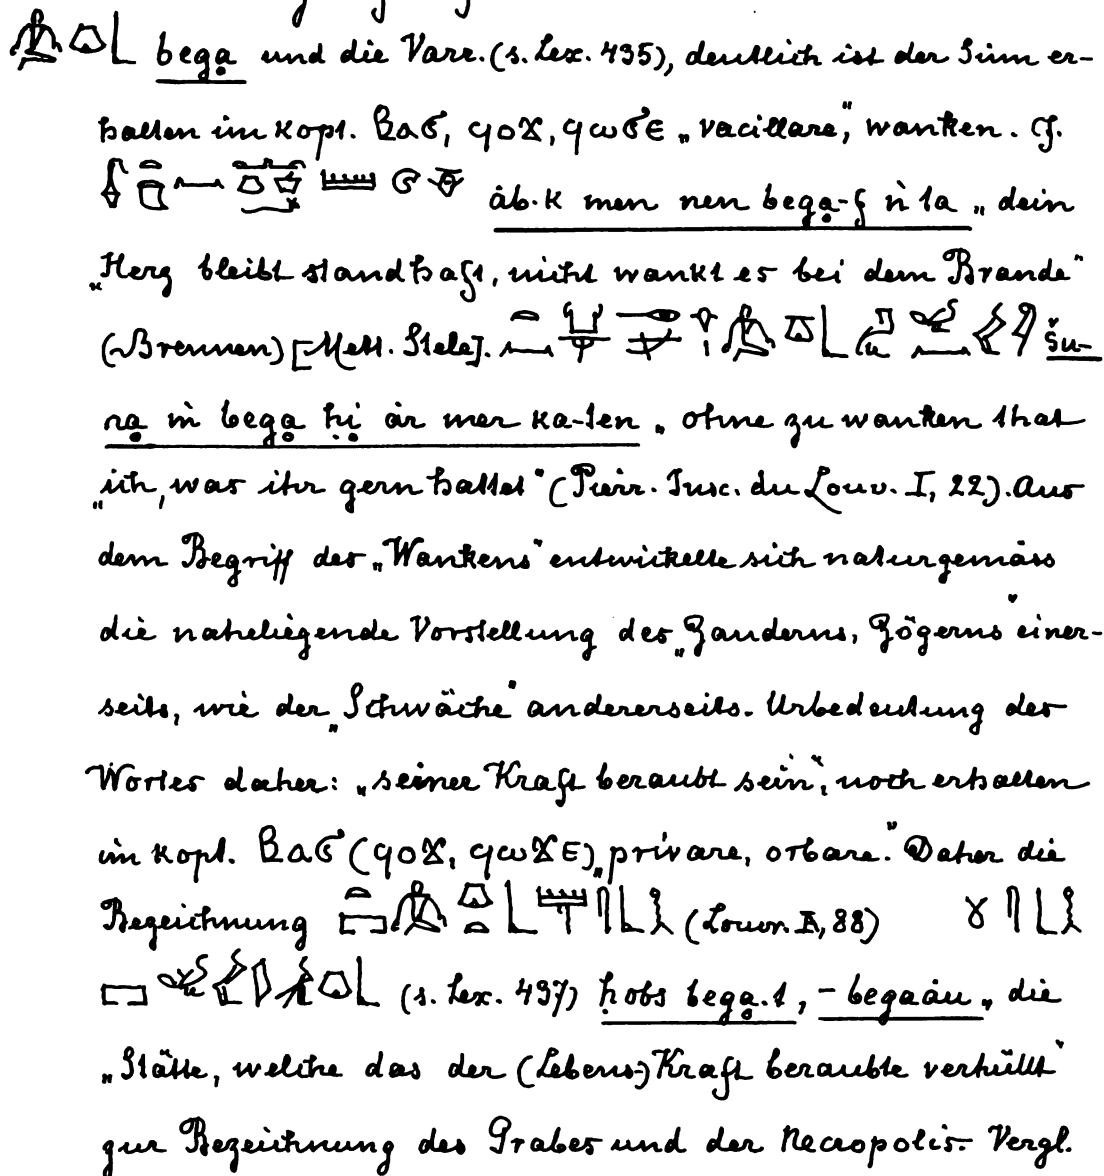 bega̤ und die Varr. (s. Lex. 435), deutlich ist der Sinn er-
halten im kopt. ⲃⲁϭ, ϥⲟϫ, ϥⲱϭⲉ „vacillare“, wanken. Cf.
áb.k men nen bega̤-f n ta „dein
„Herz bleibt standhaft, nicht wankt es bei dem Brande“
(Brennen) [Mett. Stele]. šu-
ra̤ m bega̤ ḥi ár mer ka-ten „ohne zu wanken that
„ich, was ihr gern hattet“ (Pierr. Insc. du Louv. I, 22). Aus
dem Begriff des „Wankens“ entwickelte sich naturgemäss
die naheliegende Vorstellung des „Zauderns, Zögerns“ einer-
seits, wie der „Schwäche“ andererseits. Urbedeutung des
Wortes daher: „seiner Kraft beraubt sein“, noch erhalten
im kopt. ⲃⲁϭ (ϥⲟϫ, ϥⲱϫⲉ) „privare, orbare.“ Daher die
Bezeichnung (Louvr. A, 88)
(s. Lex. 437) ḥobs bega̤.t, - begaáu „die
„Stätte, welche das der (Lebens-)Kraft beraubte verhüllt“
zur Bezeichnung des Grabes und der Necropolis. Vergl.